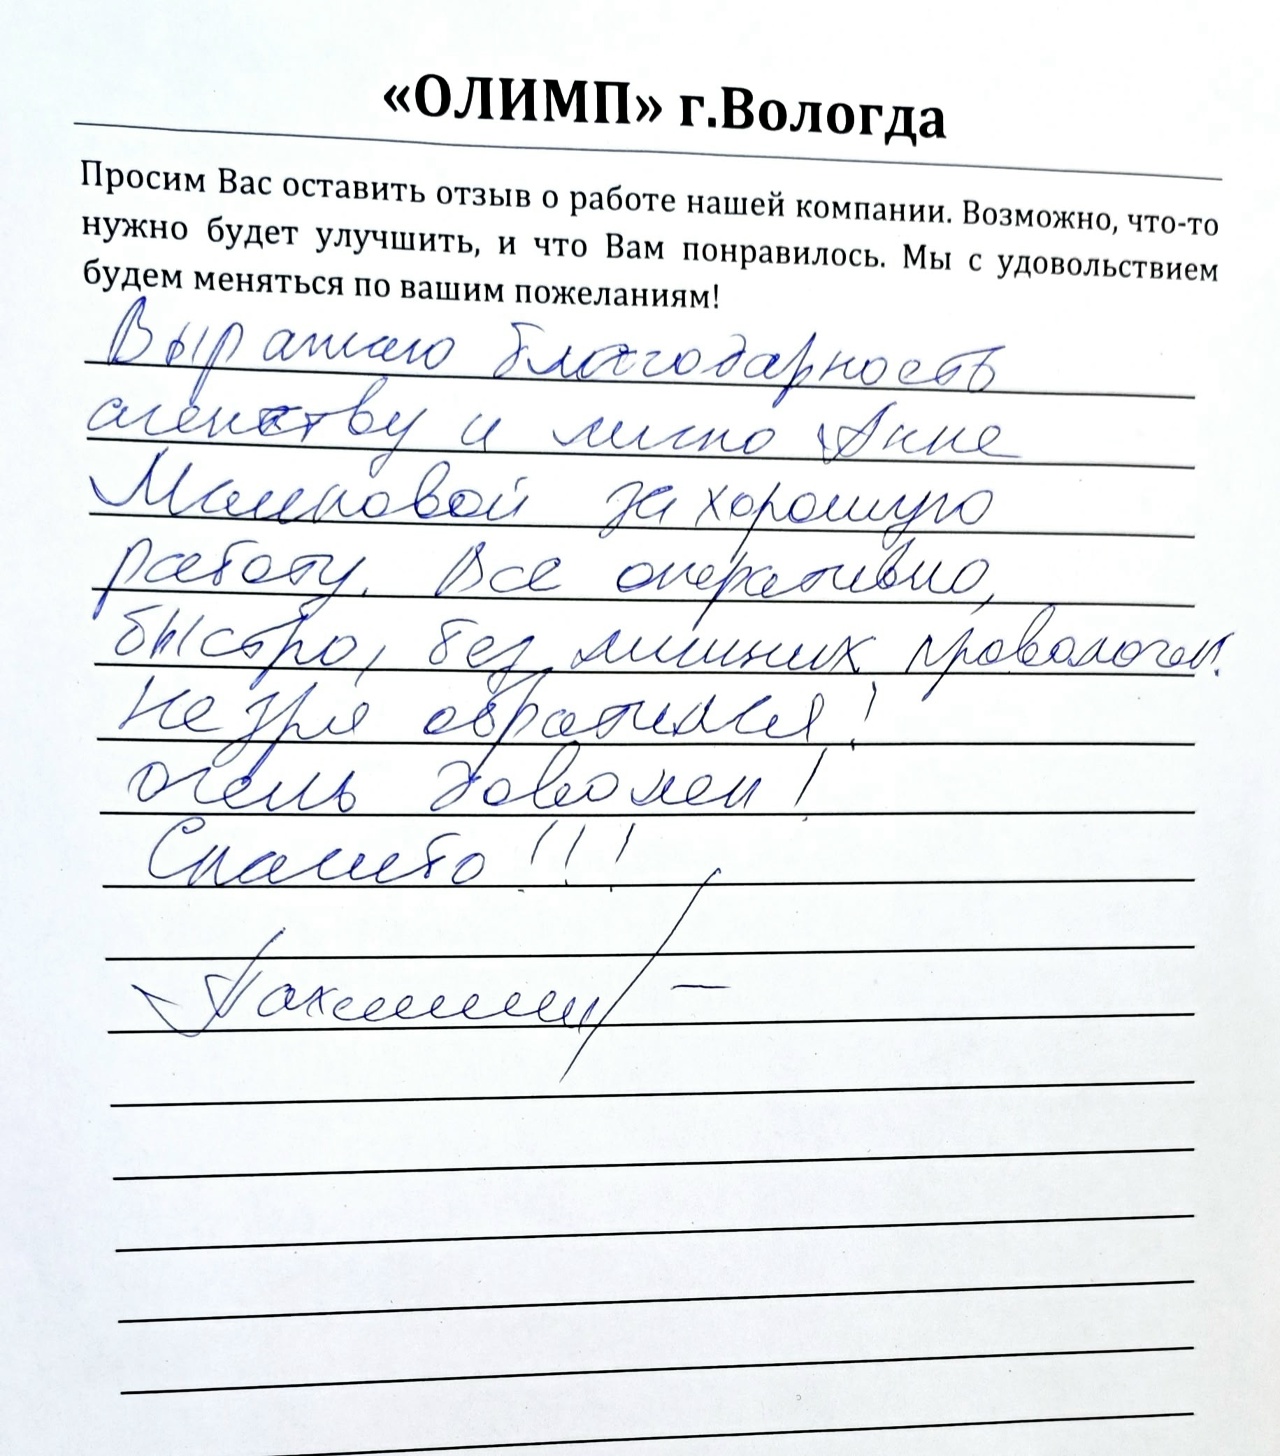 «ОЛИМП» г.Вологда
Просим Вас оставить отзыв о работе нашей компании. Возможно, что-то
нужно будет улучшить, и что Вам понравилось. Мы с удовольствием
будем меняться по вашим пожеланиям!
Выражаю благодарность
агентству и лично Анне
за хорошую
работу. Все оперативно,
быстро, без лишних проволочек.
Не зря обратился!
очень доволен!
Спасибо!!!